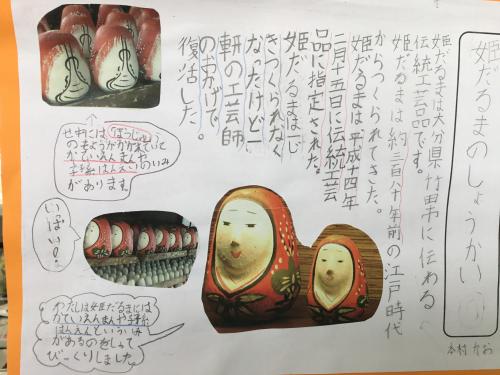 姫だるまのしょうかい
姫だるまは大分県竹田市に伝わる
伝統工芸品です。
姫だるまは約三百八十年前の江戸時代
からつくられてきた。
姫だるまは平成十四年
二月十五日に伝統工芸
品に指定された。
姫だるまはじ
きつくられなく
なったけど一
軒の工芸師
のおかげで
復活した。
ほうじゅ
のもようがかかれていて
かていえんまんや
子孫はんえいのいみ
があります
いっぱい!
わたしは姫だるまには
かていえんまんや子孫
はんえいといういみ
があるのをしって
びっくりしました。
本村